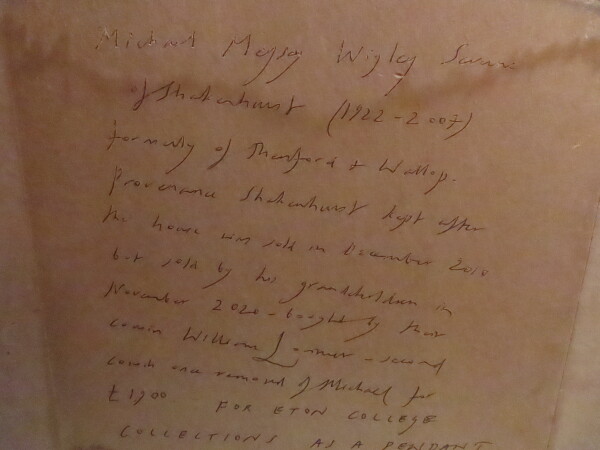 Michael Wigley Severne
of Shakenhurst (1922-2007)
formerly of Thenford & Wallop.
Provenance Shakenhurst kept after
the house was sold in December 2010
but sold by his grandchildren in
November 2020 - bought by their
cousin William - second
cousin once removed of Michael for
FOR ETON COLLEGE
COLLECTIONS AS A PENDANT